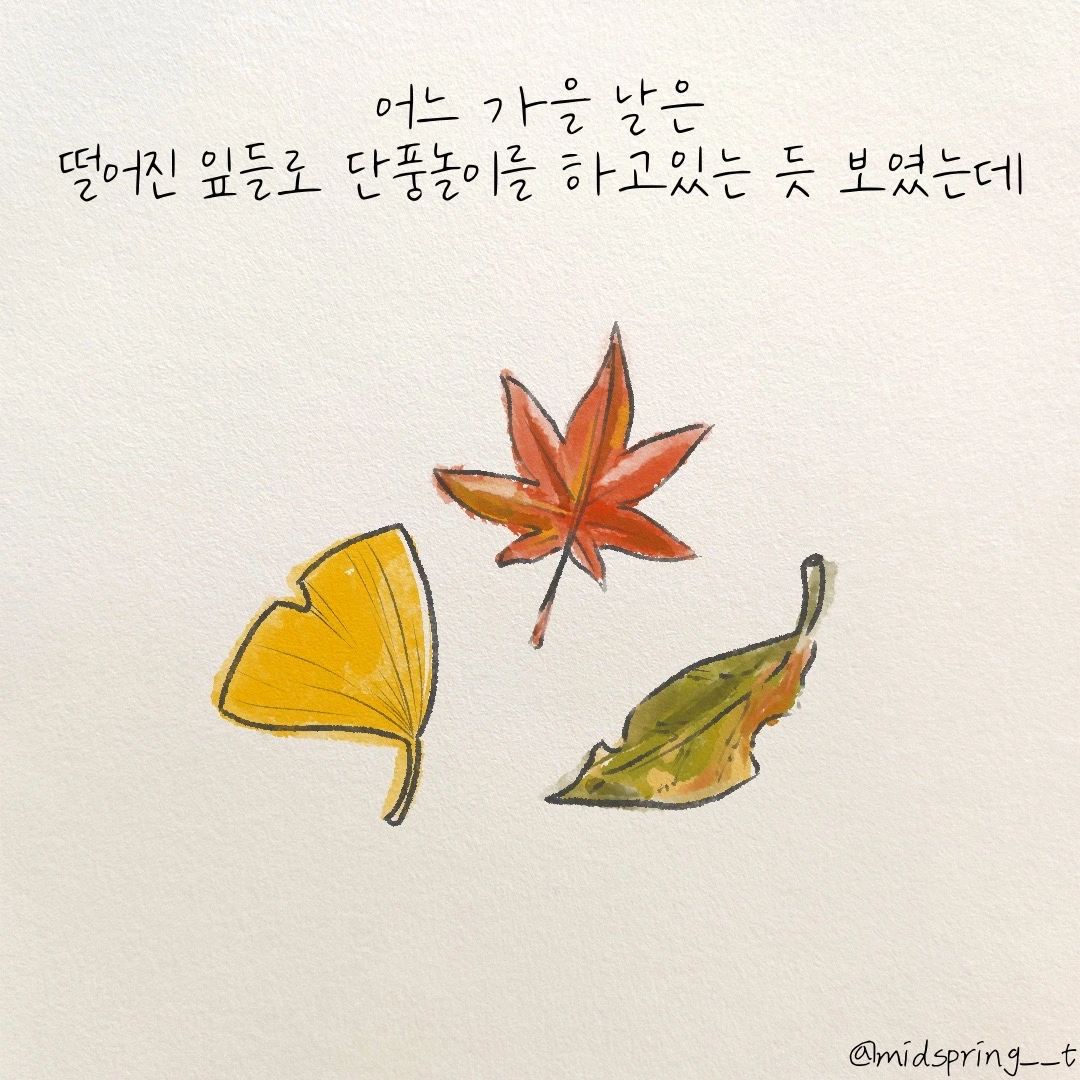 어느 가을 날은
떨어진 잎들로 단풍놀이를 하고있는 듯 보였는데
@midspring__t